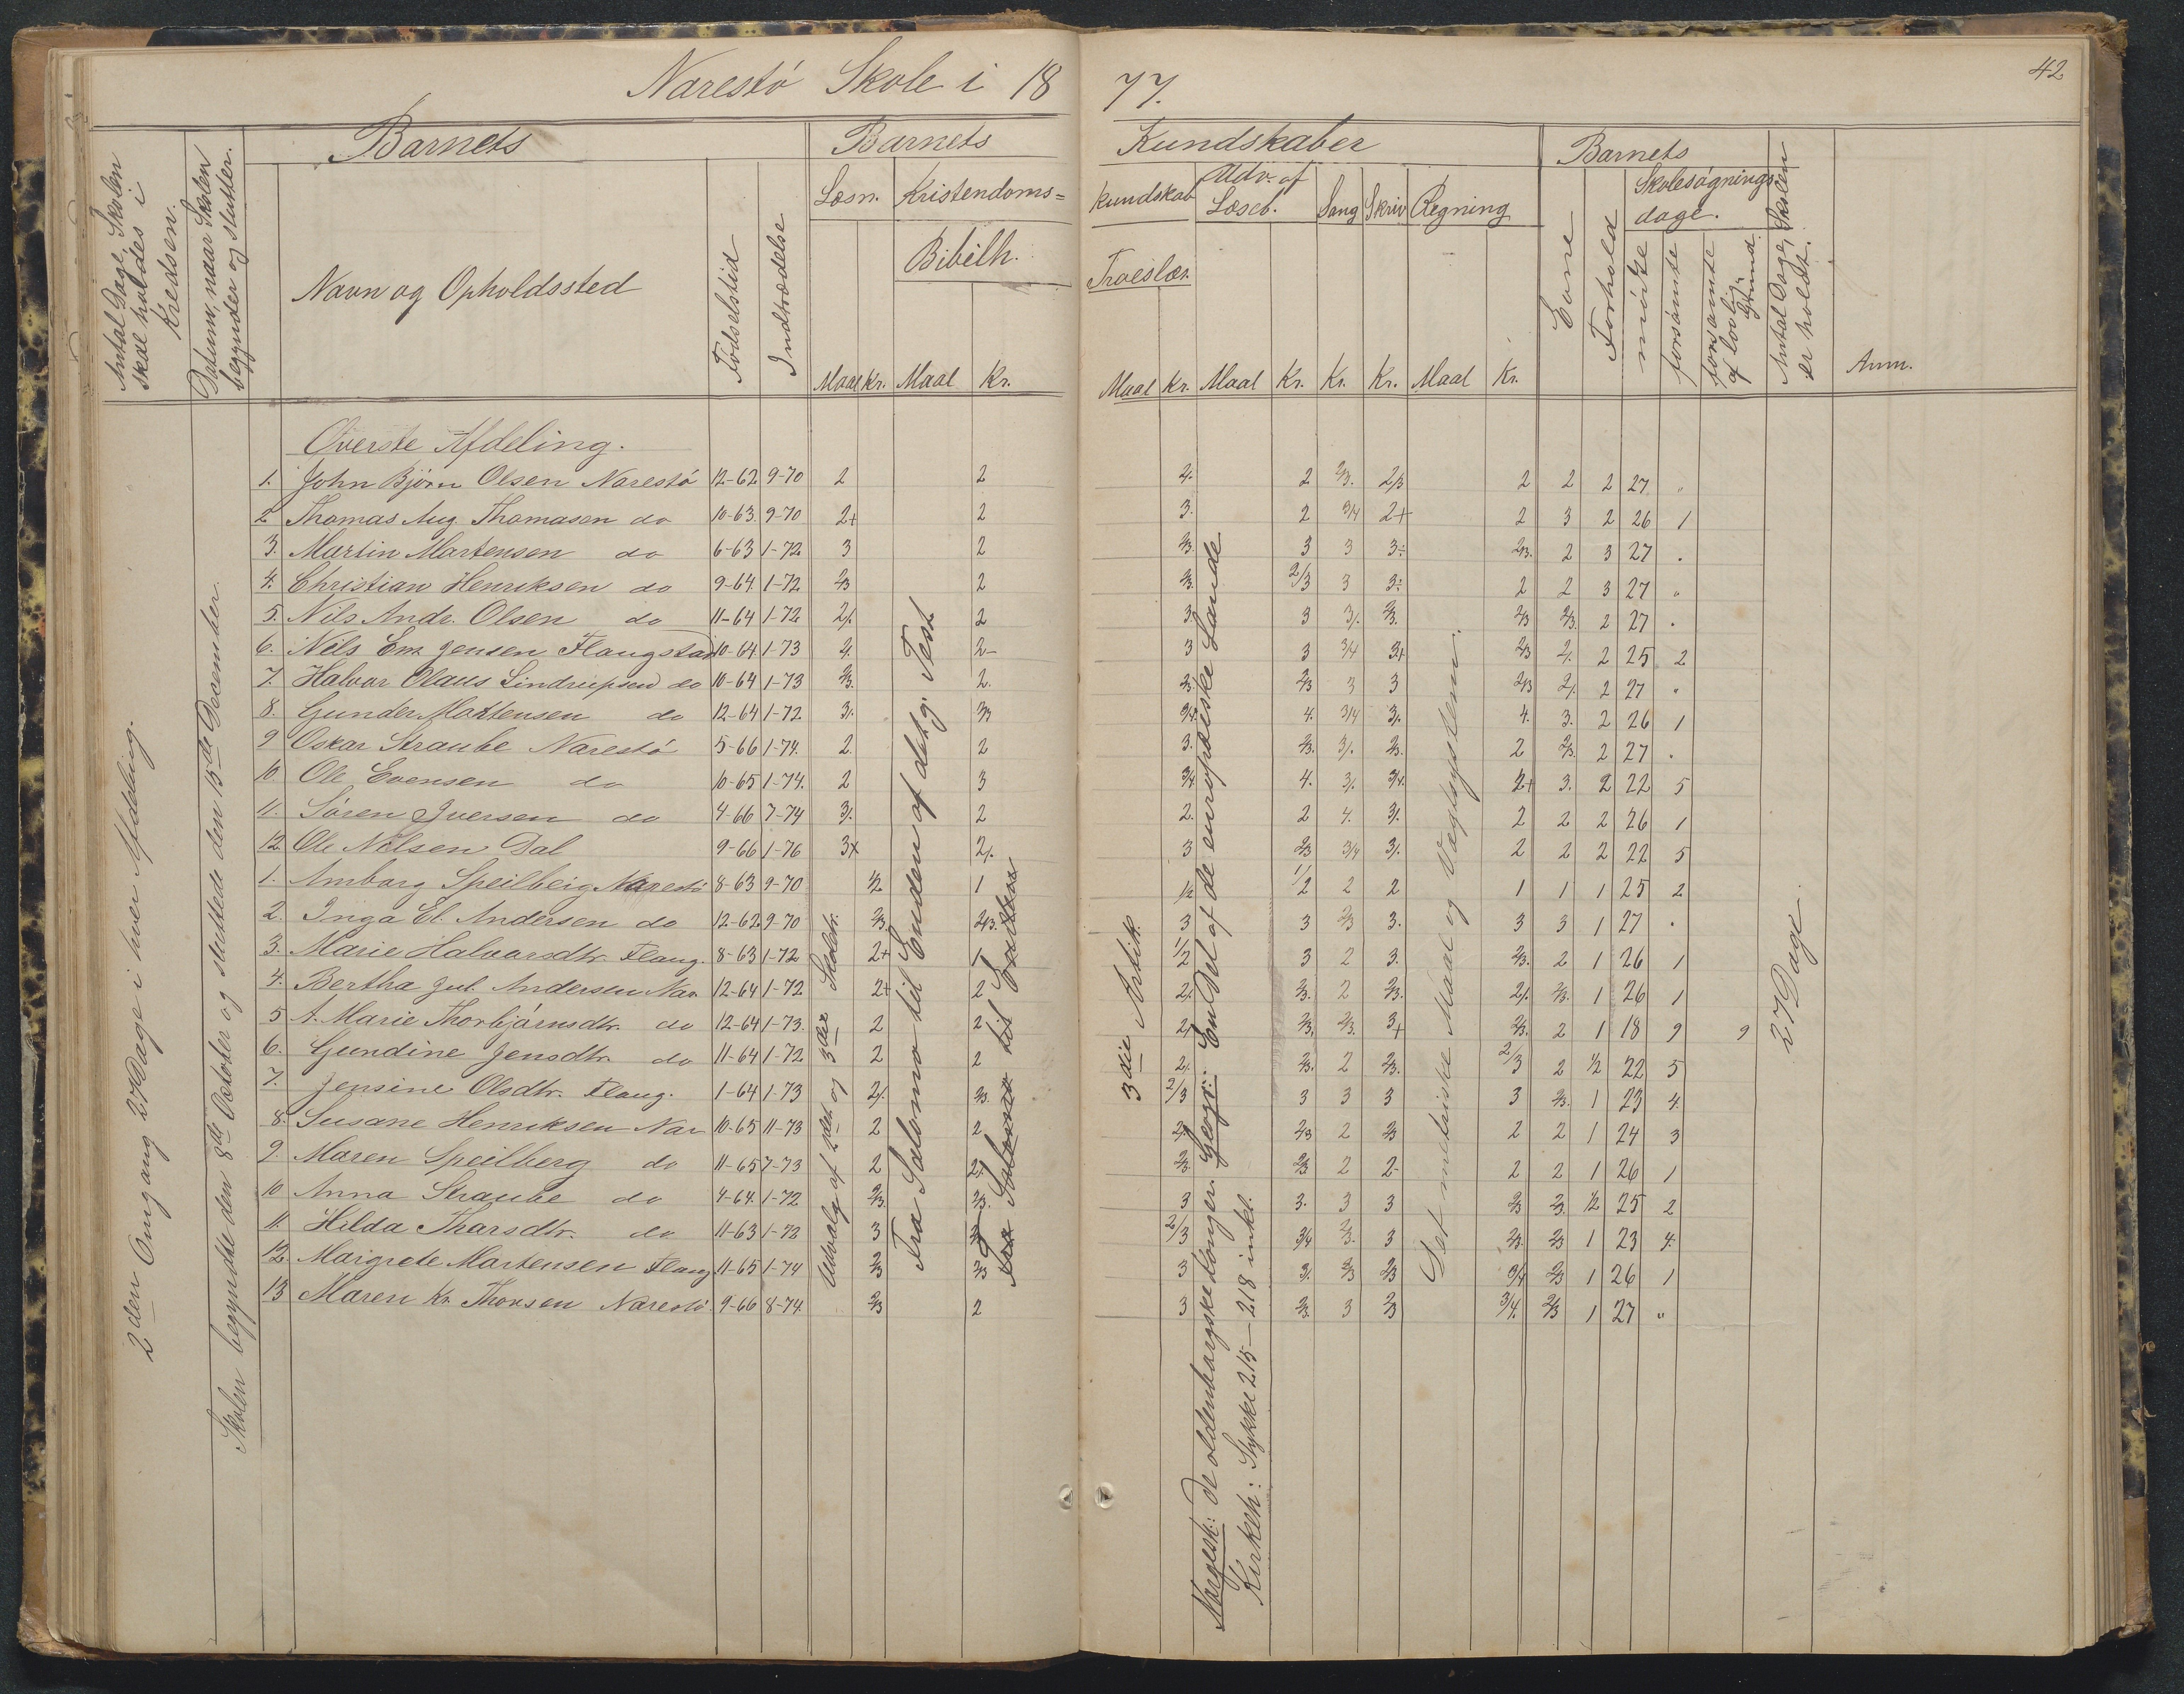 Narestö Skole i 1877.
42
Antal Dage, Skolen skal holdes i Kredsen.
Datum, naar Skolen begynder og slutter.
Barnets
Navn og Opholdssted
Födselstid
Indtrædelse
Barnets Kundskaber
Læsn.
Kristendoms-kundskab
Bibelh.
Troeslær.
Udv. af Læseb.
Sang
Skriv
Regning
Maal Kr. Maal Kr. Maal Kr. Maal Kr. Kr. Kr. Maal Kr.
Barnets
Evne
Forhold
Skolesögnings dage.
mödte
forsömte
forsömte af lovlig Grund.
Antal Dage, Skolen er holdt.
Anm.
Överste Afdeling.
1. John Björn Olsen Narestö 12-62 9-70 2 2 2. 2 2/3. 2/3 2 2 2 27 "
2 Thomas Aug. Thomasen do 10-63. 9-70 2+ 2 3. 2 3/4 2+ 2 3 2 26 1
3. Martin Martensen do 6-63 1-72 3 2 2/3. 3 3 3÷ 2/3. 2 3 27 "
4. Christian Henriksen do 9-64 1-72 2/3 2 2/3. 2/3 3 3÷ 2 2 3 27 "
5. Nils Andr. Olsen do 11-64 1-72 2/. 2 3. 3 3/. 2/3. 2/3 2/3. 2 27 "
6. Nils Em. Jensen Flaugstad 10-64 1-73 2/. 2- 3 3 3/4 3+ 2/3 2/. 2 25 2
7. Halvor Olaus Lindrupsen do 10-64 1-73 2/3. 2. 2/3. 2/3 3 3 2/3 2/. 2 27 "
8. Gunder Martensen do 12-64 1-72 3/. 2/3 3/4. 4. 3/4 3/. 4. 3. 2 26 1
9 Oskar Straube Narestö 5-66 1-74. 2. 2 3. 2/3. 3/. 2/3. 2 2/3. 2 27 "
10. Ole Evensen do 10-65 1-74. 2 3 3/4 4. 3/. 3/4. 2+ 3. 2 22 5
11. Sören Iversen do 4-66 7-74 3/. 2 2. 2 4. 3/. 2 2 2 26 1
12. Ole Nilsen Dal 9-66 1-76 3+ 2/. 3 2/3 3/4 3/. 2 2 2 22 5
1. Amborg Speilberg Narestö 8-63 9-70 1/2 1 1/2 1/2 2 2 1 1 1 25 2
2. Inga El. Andersen do 12-62 9-70 2/3. 2/3. 3 3 2/3 3. 3 3 1 27 "
3. Marie Halvorsdtr. Flaug. 8-63 1-72 2+ 1 1/2 3 2 3. 2/3. 2 1 26 1
4. Bertha Jul. Andersen Nar 12-64 1-72 2+ 2 2/. 2/3. 2 2/3. 2/. 2/3. 1 26 1
5 A. Marie Thorbjörnsdtr. do 12-64 1-73. 2 2 2/. 2/3. 2/3. 3+ 2/3. 2 1 18 9 9
6. Gundine Jensdtr. do 11-64 1-72 2 2 2/. 2/3. 2 2/3. 2/3 2 1/2 22 5
7. Jensine Olsdtr. Flaug. 1-64 1-73 2/. 2/3. 2/3 3 3 3 3 2/3. 1 23 4.
8. Susane Henriksen Nar 10-65 11-73 2 2 2/. 2/3 2 2/3 2 2 1 24 3
9. Maren Speilberg do 11-65 7-73 2 2/. 2/3. 2/3 2 2- 2 2 1 26 1
10 Anna Straube do 4-64. 1-72 2/3. 2/3. 3 3. 3 3 2/3 2/3. 1/2 25 2
11. Hilda Tharsdtr. do 11-63 1-72 3 2/3 3/4 2/3. 3 2/3. 2/3 1 23 4.
12. Margrete Martensen Flaug 11-65 1-74 2/3 2/3 3 3/. 2/3 2/3 3/4 2/3 1 26 1
13 Maren Kr. Thorsen Narestö. 9-66 8-74. 2/3 2 3 2/3. 3 2/3 3/4. 2/3 1 27 "
2den Omgang 27 Dage i hver Afdeling.
Skolen begyndte den 8de Octoter og sluttede den 15de December.
Udvalg af 2det og 3die Skoletr.
Fra Salomo til Enden af det g. Test
Fra Salomo til
3die Artik.
Norgesh: De oldenborgske Konger. Geogr: En Del af de europæiske Lande
Kirkeh: Stykke 215–218 inkl.
Det metriske Maal og Vægtsystem.
27 Dage.